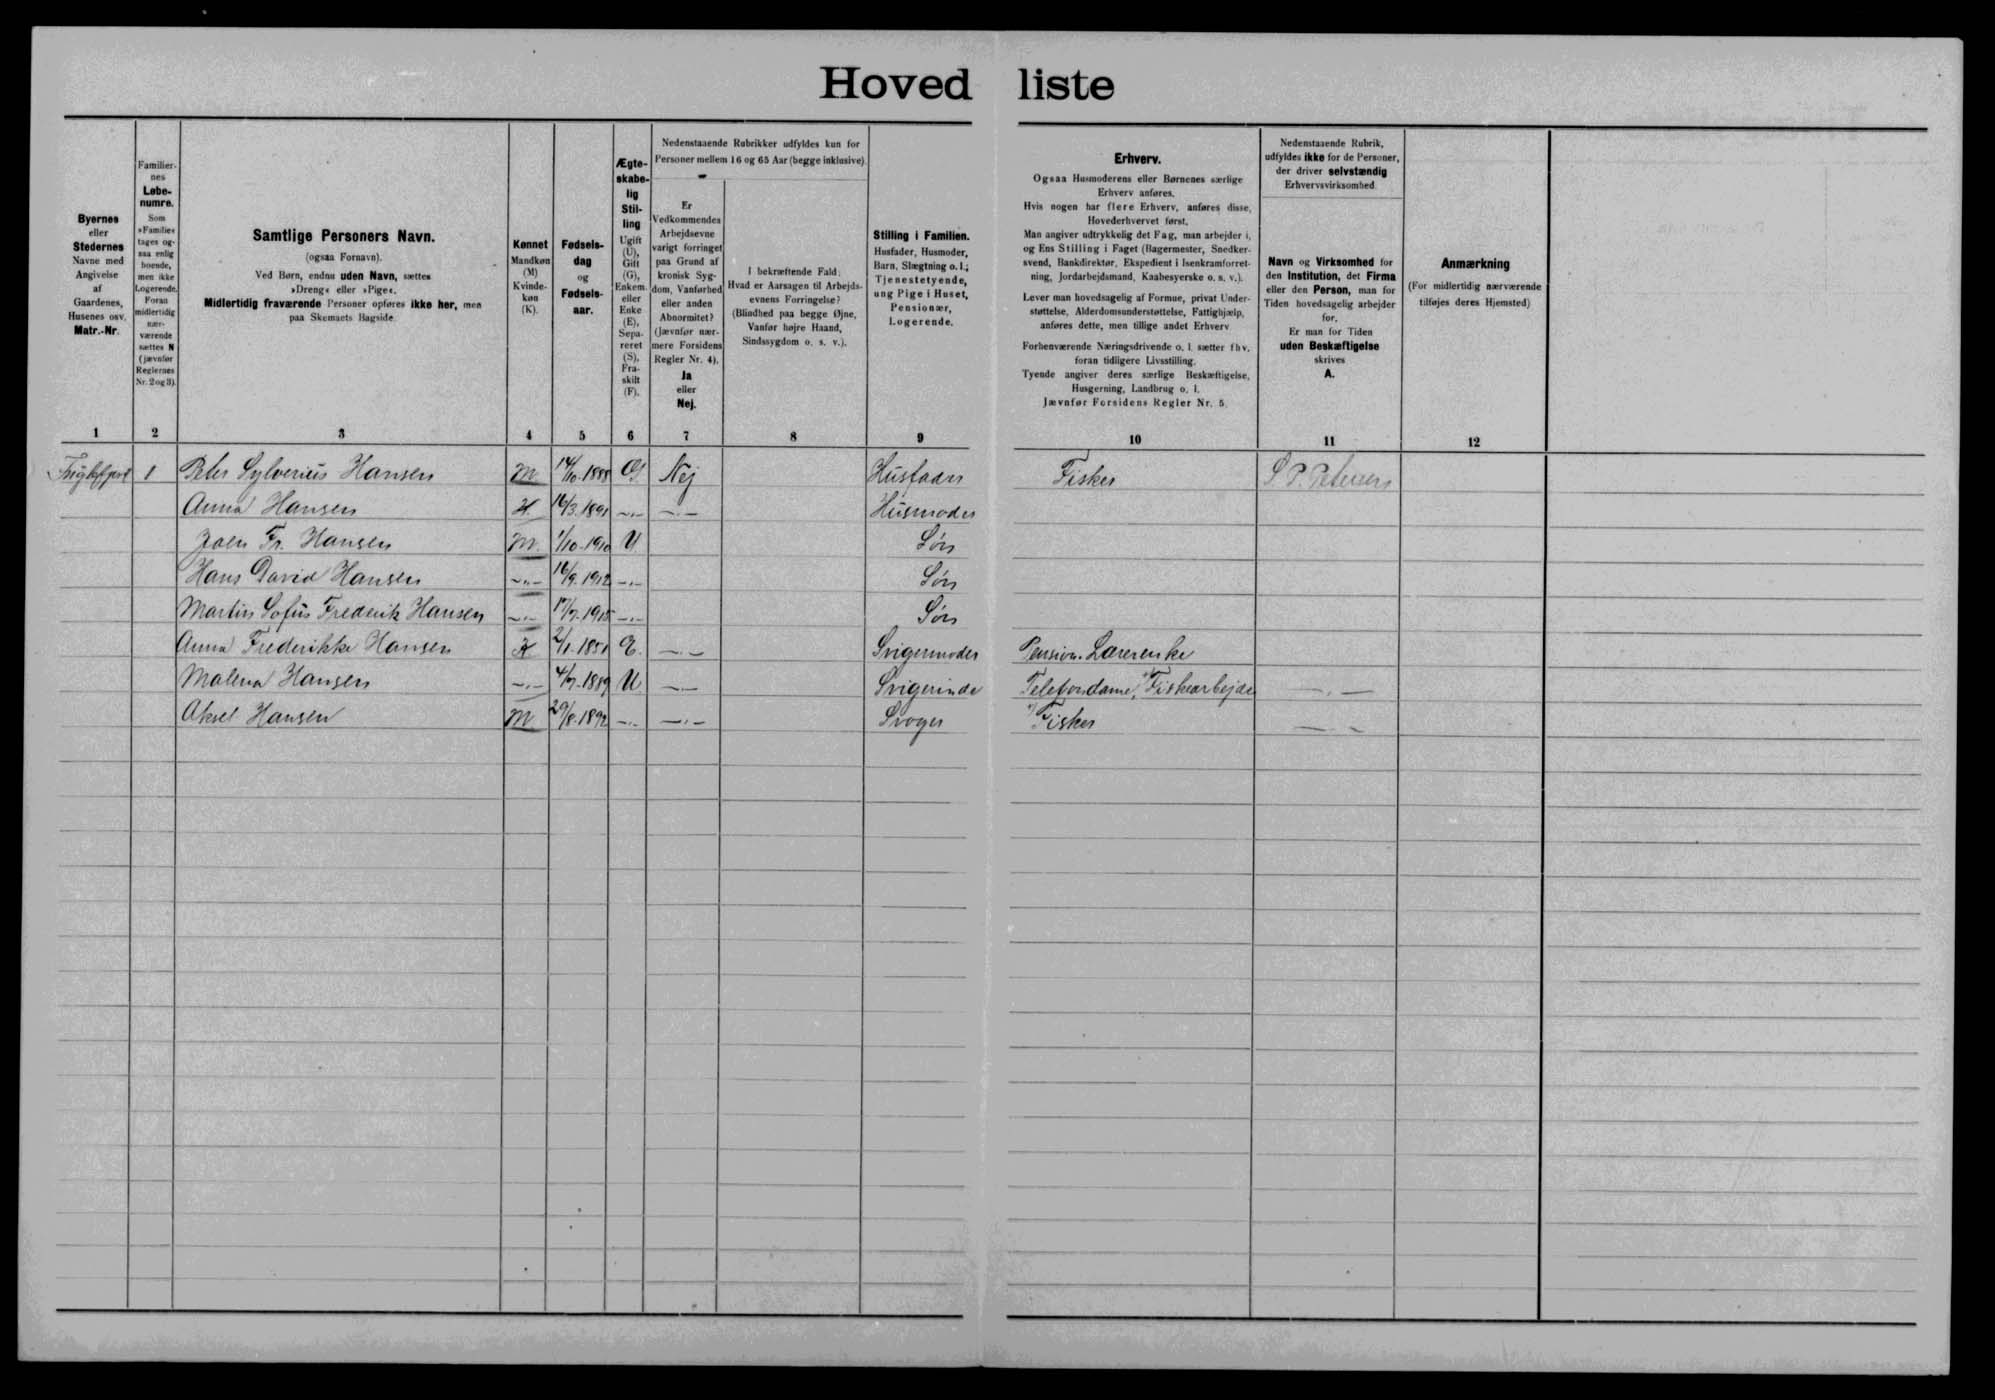 Hovedliste
Byernes
eller
Stedernes
Navne med
Angivelse
af
Gaardenes,
Husenes osv.
Matr.-Nr.
Familier-
nes
Løbe-
numre.
Som
»Familie«
tages og-
saa enlig
boende,
men ikke
Logerende.
Foran
midlertidig
nær-
værende
sættes N
(jævnfør
Reglernes
Nr. 2 og 3).
Samtlige Personers Navn.
(ogsaa Fornavn).
Ved Børn, endnu uden Navn, sættes
»Dreng« eller »Pige«.
Midlertidig fraværende Personer opføres ikke her, men
paa Skemaets Bagside.
Kønnet
Mandkøn
(M)
Kvinde-
køn
(K).
Fødsels-
dag
og
Fødsels-
aar.
Ægte-
skabe-
lig
Stil-
ling
Ugift
(U),
Gift
(G),
Enkem.
eller
Enke
(E),
Sepa-
reret
(S),
Fra-
skilt
(F).
Nedenstaaende Rubrikker udfyldes kun for
Personer mellem 16 og 65 Aar (begge inklusive).
Er
Vedkommendes
Arbejdsevne
varigt forringet
paa Grund af
kronisk Syg-
dom, Vanførhed
eller anden
Abnormitet?
(Jævnfør nær-
mere Forsidens
Regler Nr. 4).
Ja
eller
Nej.
I bekræftende Fald:
Hvad er Aarsagen til Arbejds-
evnens Forringelse?
(Blindhed paa begge Øjne,
Vanfør højre Haand,
Sindssygdom o. s. v.).
Stilling i Familien.
Husfader, Husmoder,
Barn, Slægtning o. l.;
Tjenestetyende,
ung Pige i Huset,
Pensionær,
Logerende.
Erhverv.
Ogsaa Husmoderens eller Børnenes særlige
Erhverv anføres.
Hvis nogen har flere Erhverv, anføres disse,
Hovederhvervet først.
Man angiver udtrykkelig det Fag, man arbejder i,
og Ens Stilling i Faget (Bagermester, Snedker-
svend, Bankdirektør, Ekspedient i Isenkramforret-
ning, Jordarbejdsmand, Kaabesyerske o. s. v.).
Lever man hovedsagelig af Formue, privat Under-
støttelse, Alderdomsunderstøttelse, Fattighjælp,
anføres dette, men tillige andet Erhverv.
Forhenværende Næringsdrivende o. l. sætter fhv.
foran tidligere Livsstilling.
Tyende angiver deres særlige Beskæftigelse,
Husgerning, Landbrug o. l.
Jævnfør Forsidens Regler Nr. 5.
Nedenstaaende Rubrik,
udfyldes ikke for de Personer,
der driver selvstændig
Erhvervsvirksomhed
Navn og Virksomhed for
den Institution, det Firma
eller den Person, man for
Tiden hovedsagelig arbejder
for.
Er man for Tiden
uden Beskæftigelse
skrives
A.
Anmærkning
(For midlertidig nærværende
tilføjes deres Hjemsted)
1 2 3 4 5 6 7 8 9 10 11 12
1 Peter Sylverius Hansen M 14/10-1888 G Nej Husfader Fisker S. P. Petersen
Anna Hansen K 16/3-1891 -"- -"- Husmoder
Joen Fr. Hansen M. 1/10-1910 U Søn
Hans David Hansen -"- 16/9-1912 -"- Søn
Martin Sofus Frederik Hansen -"- 17/7-1915 -"- Søn
Anna Frederikke Hansen K 2/1-1851 E. -"- Svigermoder Pension. Lærerenke
Malena Hansen -"- 4/7-1889 U -"- Svigerinde Telefondame, Fiskearbejde -"-
Aksel Hansen M 29/8-1892 -"- -"- Svoger Fisker -"-